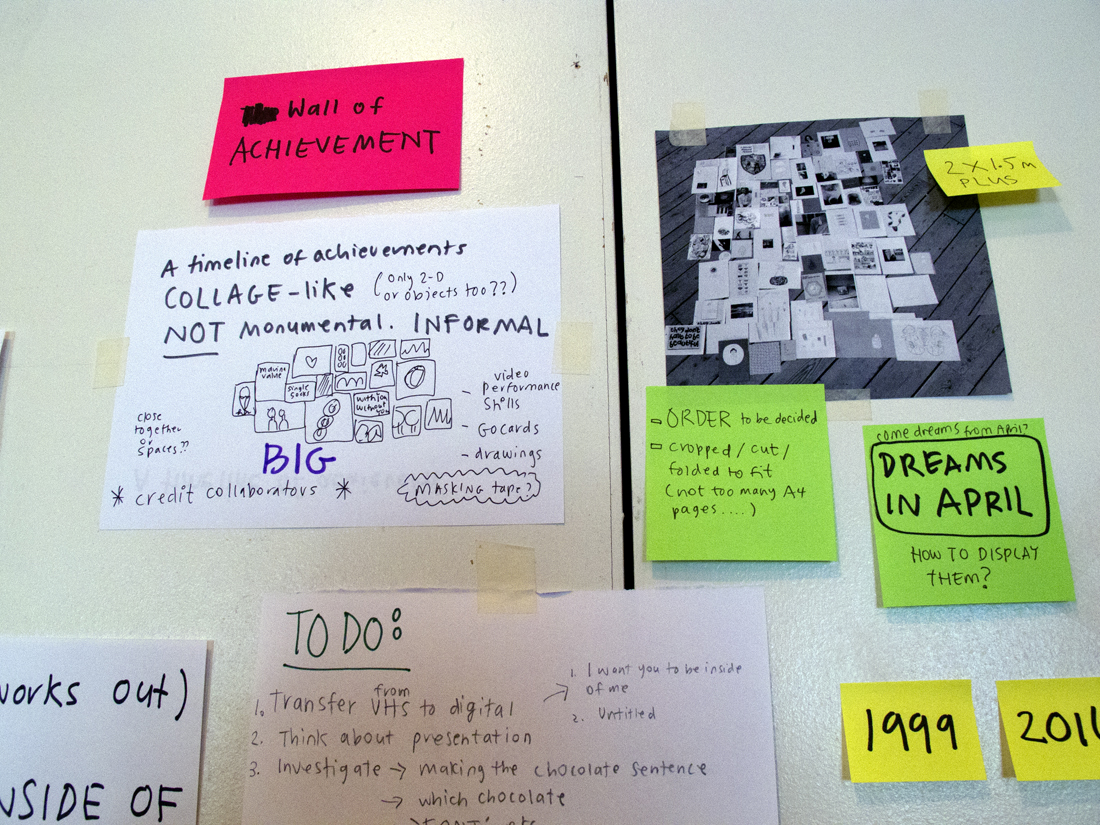 Wall of
ACHIEVEMENT
A timeline of achievements
COLLAGE-like (Only 2-D
or objects too??)
NOT monumental. INFORMAL
moving
value
single
socks
with you
without
you
close
together
or
spaces??
BIG
video
performance
stills
- Go cards
- drawings
* credit collaborators *
MASKING tape?
2 X 1.5 m
PLUS
they don't
have to be
beautiful
- ORDER to be decided
- cropped / cut /
folded to fit
(not too many A4
pages....)
some dreams from April?
DREAMS
IN APRIL
HOW TO DISPLAY
THEM?
TO DO:
1. Transfer from VHS to digital
1. I want you to be inside
of me
2. Untitled
2. Think about presentation
3. Investigate → making the chocolate sentence
→ which chocolate
works out)
INSIDE OF
1999